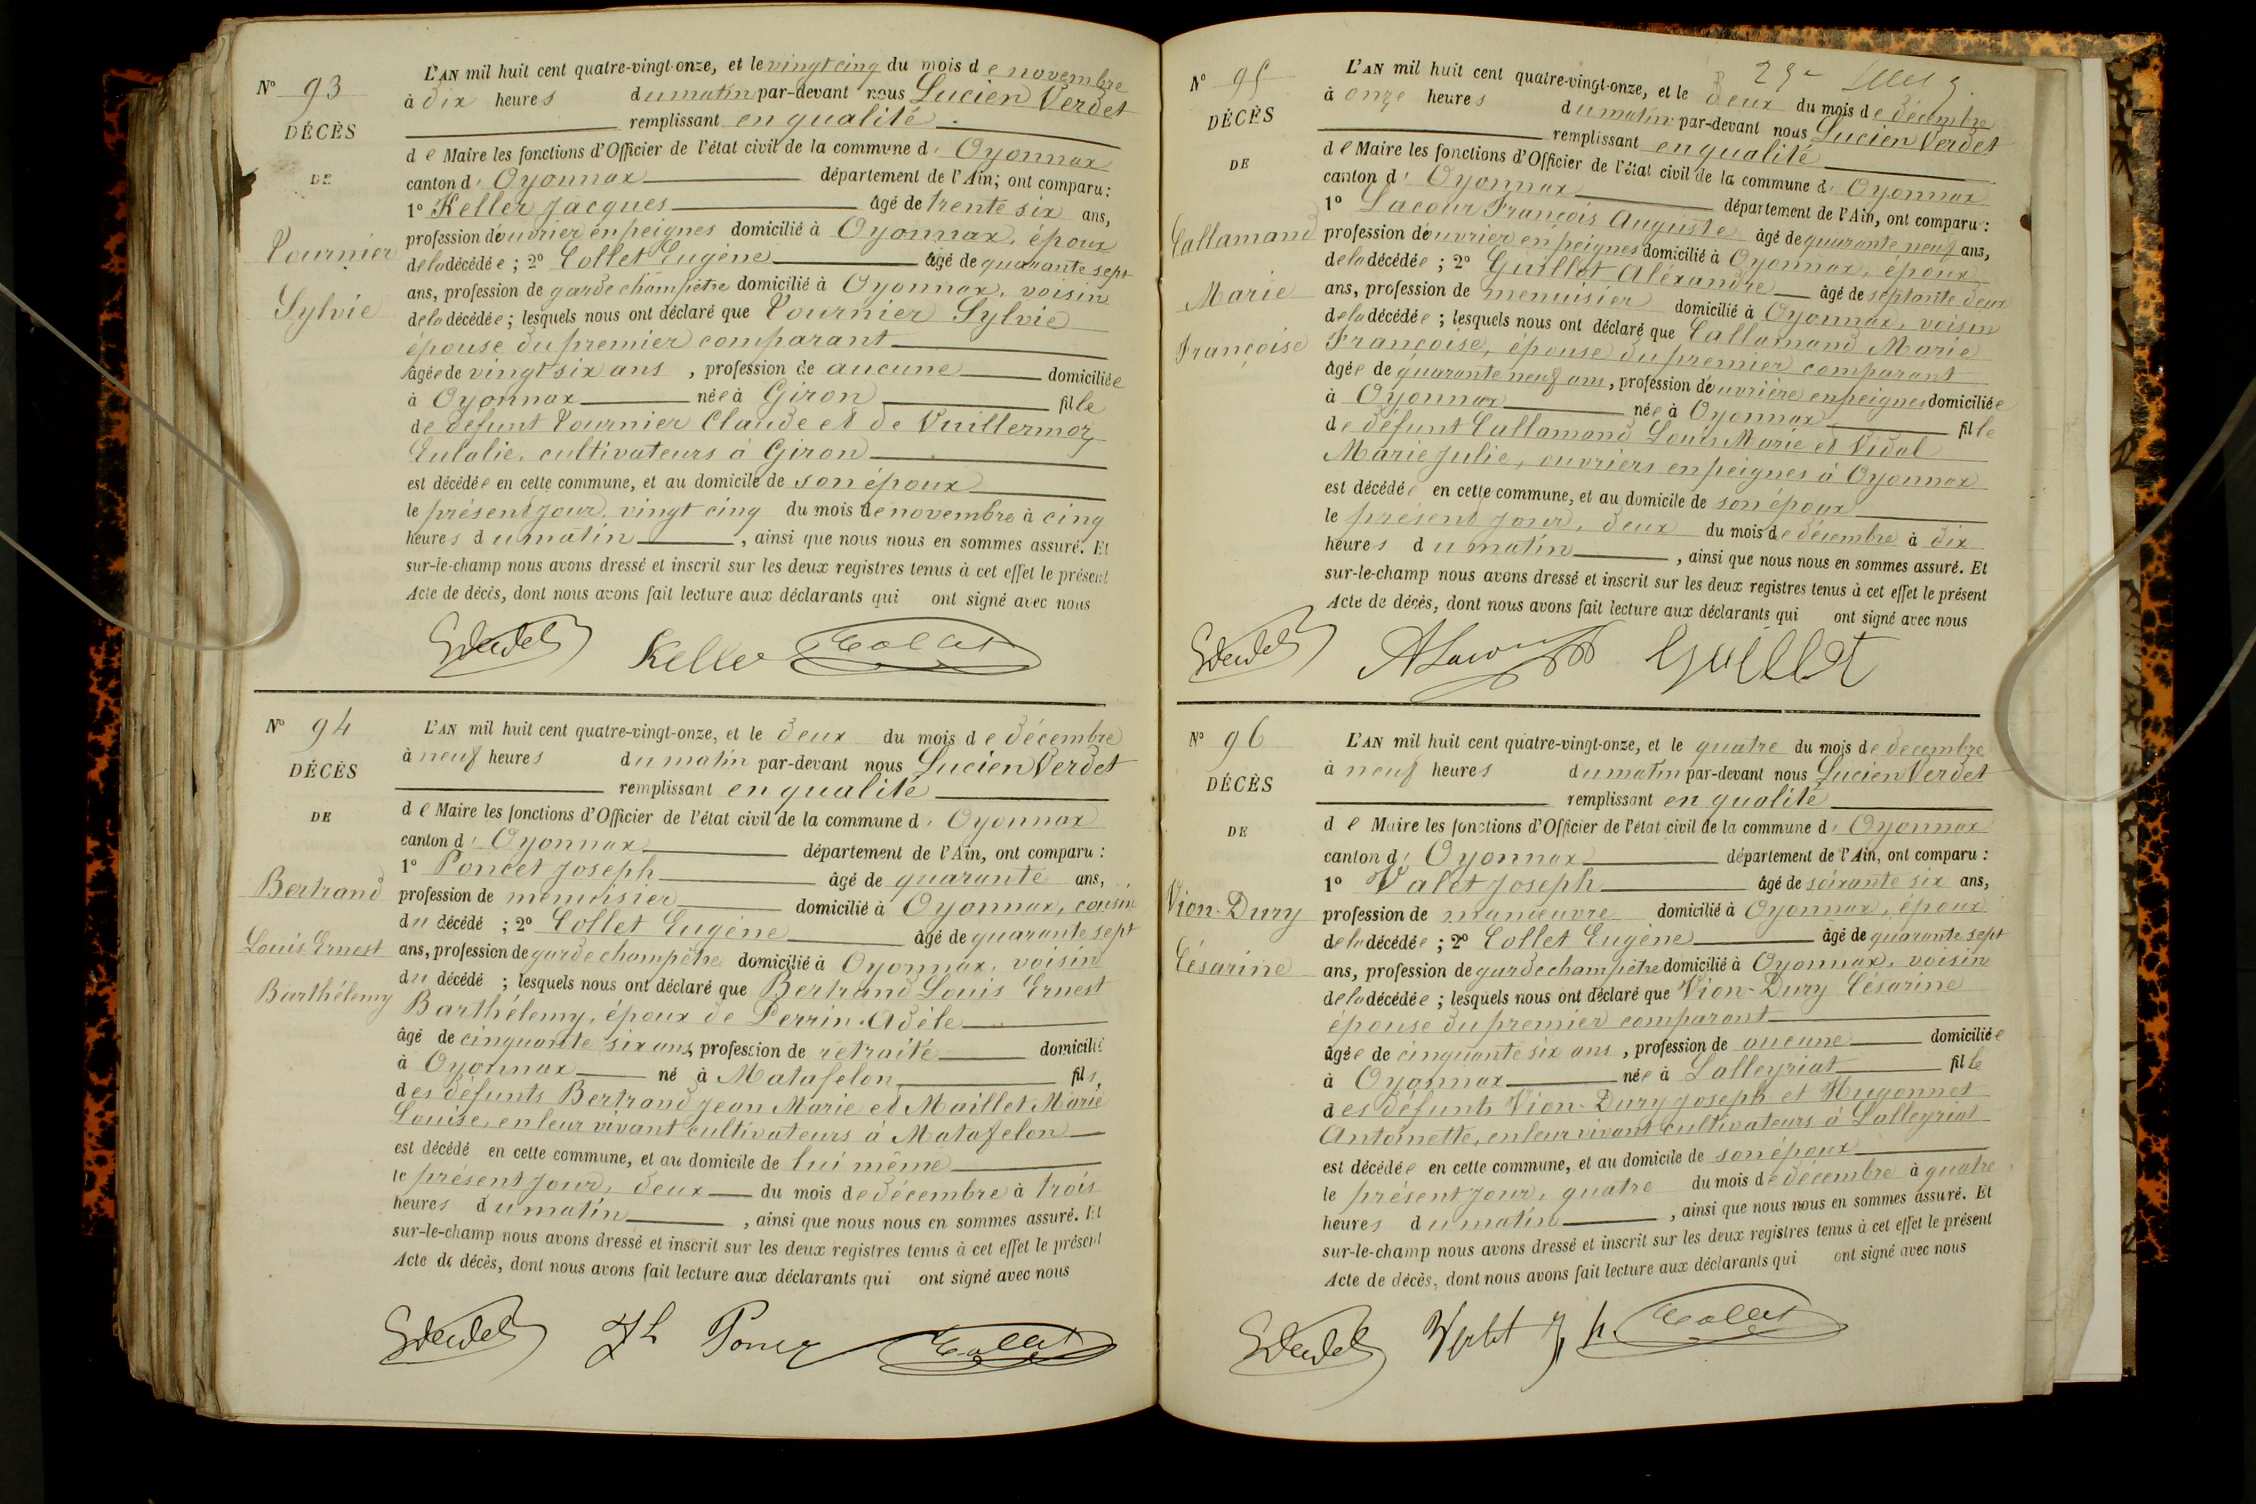 N° 93
DÉCÈS
DE
Tournier
Sylvie
L'AN mil huit cent quatre-vingt-onze, et le vingt cinq du mois de novembre
à dix heures du matin par-devant nous Lucien Verdet
remplissant en qualité
de Maire les fonctions d'Officier de l'état civil de la commune d' Oyonnax
canton d' Oyonnax département de l'Ain; ont comparu :
1° Keller Jacques âgé de trente six ans,
profession d'ouvrier en peignes domicilié à Oyonnax, époux
de la décédée ; 2° Collet Eugène âgé de quarante sept
ans, profession de garde champêtre domicilié à Oyonnax, voisin
de la décédée ; lesquels nous ont déclaré que Tournier Sylvie
épouse du premier comparant
âgée de vingt six ans , profession de aucune domiciliée
à Oyonnax née à Giron fille
de défunt Tournier Claude et de Vuillermoz
Eulalie, cultivateurs à Giron
est décédée en cette commune, et au domicile de son époux
le présent jour, vingt cinq du mois de novembre à cinq
heures du matin , ainsi que nous nous en sommes assuré. Et
sur-le-champ nous avons dressé et inscrit sur les deux registres tenus à cet effet le présent
Acte de décès, dont nous avons fait lecture aux déclarants qui ont signé avec nous
Keller Collet
N° 94
DÉCÈS
DE
Bertrand
Louis Ernest
Barthélemy
L'AN mil huit cent quatre-vingt-onze, et le deux du mois de décembre
à neuf heures du matin par-devant nous Lucien Verdet
remplissant en qualité
de Maire les fonctions d'Officier de l'état civil de la commune d' Oyonnax
canton d' Oyonnax département de l'Ain, ont comparu :
1° Poncet Joseph âgé de quarante ans,
profession de menuisier domicilié à Oyonnax, cousin
du décédé ; 2° Collet Eugène âgé de quarante sept
ans, profession de garde champêtre domicilié à Oyonnax, voisin
du décédé ; lesquels nous ont déclaré que Bertrand Louis Ernest
Barthélemy, époux de Perrin Adèle
âgé de cinquante six ans, profession de retraité domicilié
à Oyonnax né à Matafelon fils,
des défunts Bertrand Jean Marie et Maillet Marie
Louise, en leur vivant cultivateurs à Matafelon
est décédé en cette commune, et au domicile de lui même
le présent jour, deux du mois de décembre à trois
heures du matin , ainsi que nous nous en sommes assuré. Et
sur-le-champ nous avons dressé et inscrit sur les deux registres tenus à cet effet le présent
Acte de décès, dont nous avons fait lecture aux déclarants qui ont signé avec nous
Collet
N° 95
DÉCÈS
DE
Callamand
Marie
Françoise
L'AN mil huit cent quatre-vingt-onze, et le deux du mois de décembre
à onze heures du matin par-devant nous Lucien Verdet
remplissant en qualité
de Maire les fonctions d'Officier de l'état civil de la commune d' Oyonnax
canton d' Oyonnax département de l'Ain, ont comparu :
1° Lacour François Auguste âgé de quarante neuf ans,
profession d'ouvrier en peignes domicilié à Oyonnax, époux
de la décédée ; 2° Guillot Aléxandre âgé de septante deux
ans, profession de menuisier domicilié à Oyonnax, voisin
de la décédée ; lesquels nous ont déclaré que Callamand Marie
Françoise, épouse du premier comparant
âgée de quarante neuf ans, profession d'ouvrière en peignes domiciliée
à Oyonnax née à Oyonnax fille
de défunt Callamand Louis Marie et Vidal
Marie Julie, ouvriers en peignes à Oyonnax
est décédée en cette commune, et au domicile de son époux
le présent jour, deux du mois de décembre à dix
heures du matin , ainsi que nous nous en sommes assuré. Et
sur-le-champ nous avons dressé et inscrit sur les deux registres tenus à cet effet le présent
Acte de décès, dont nous avons fait lecture aux déclarants qui ont signé avec nous
Guillot
N° 96
DÉCÈS
DE
Vion-Dury
Césarine
L'AN mil huit cent quatre-vingt-onze, et le quatre du mois de decembre
à neuf heures du matin par-devant nous Lucien Verdet
remplissant en qualité
de Maire les fonctions d'Officier de l'état civil de la commune d' Oyonnax
canton d' Oyonnax département de l'Ain, ont comparu :
1° Valet Joseph âgé de soixante six ans,
profession de manœuvre domicilié à Oyonnax, époux
de la décédée ; 2° Collet Eugène âgé de quarante sept
ans, profession de garde champêtre domicilié à Oyonnax, voisin
de la décédée ; lesquels nous ont déclaré que Vion-Dury Césarine
épouse du premier comparant
âgée de cinquante six ans , profession de aucune domiciliée
à Oyonnax née à Lalleyriat fille
des défunts Vion-Dury Joseph et Hugonnet
Antoinette, en leur vivant cultivateurs à Lalleyriat
est décédée en cette commune, et au domicile de son époux
le présent jour, quatre du mois de décembre à quatre
heures du matin , ainsi que nous nous en sommes assuré. Et
sur-le-champ nous avons dressé et inscrit sur les deux registres tenus à cet effet le présent
Acte de décès, dont nous avons fait lecture aux déclarants qui ont signé avec nous
Collet